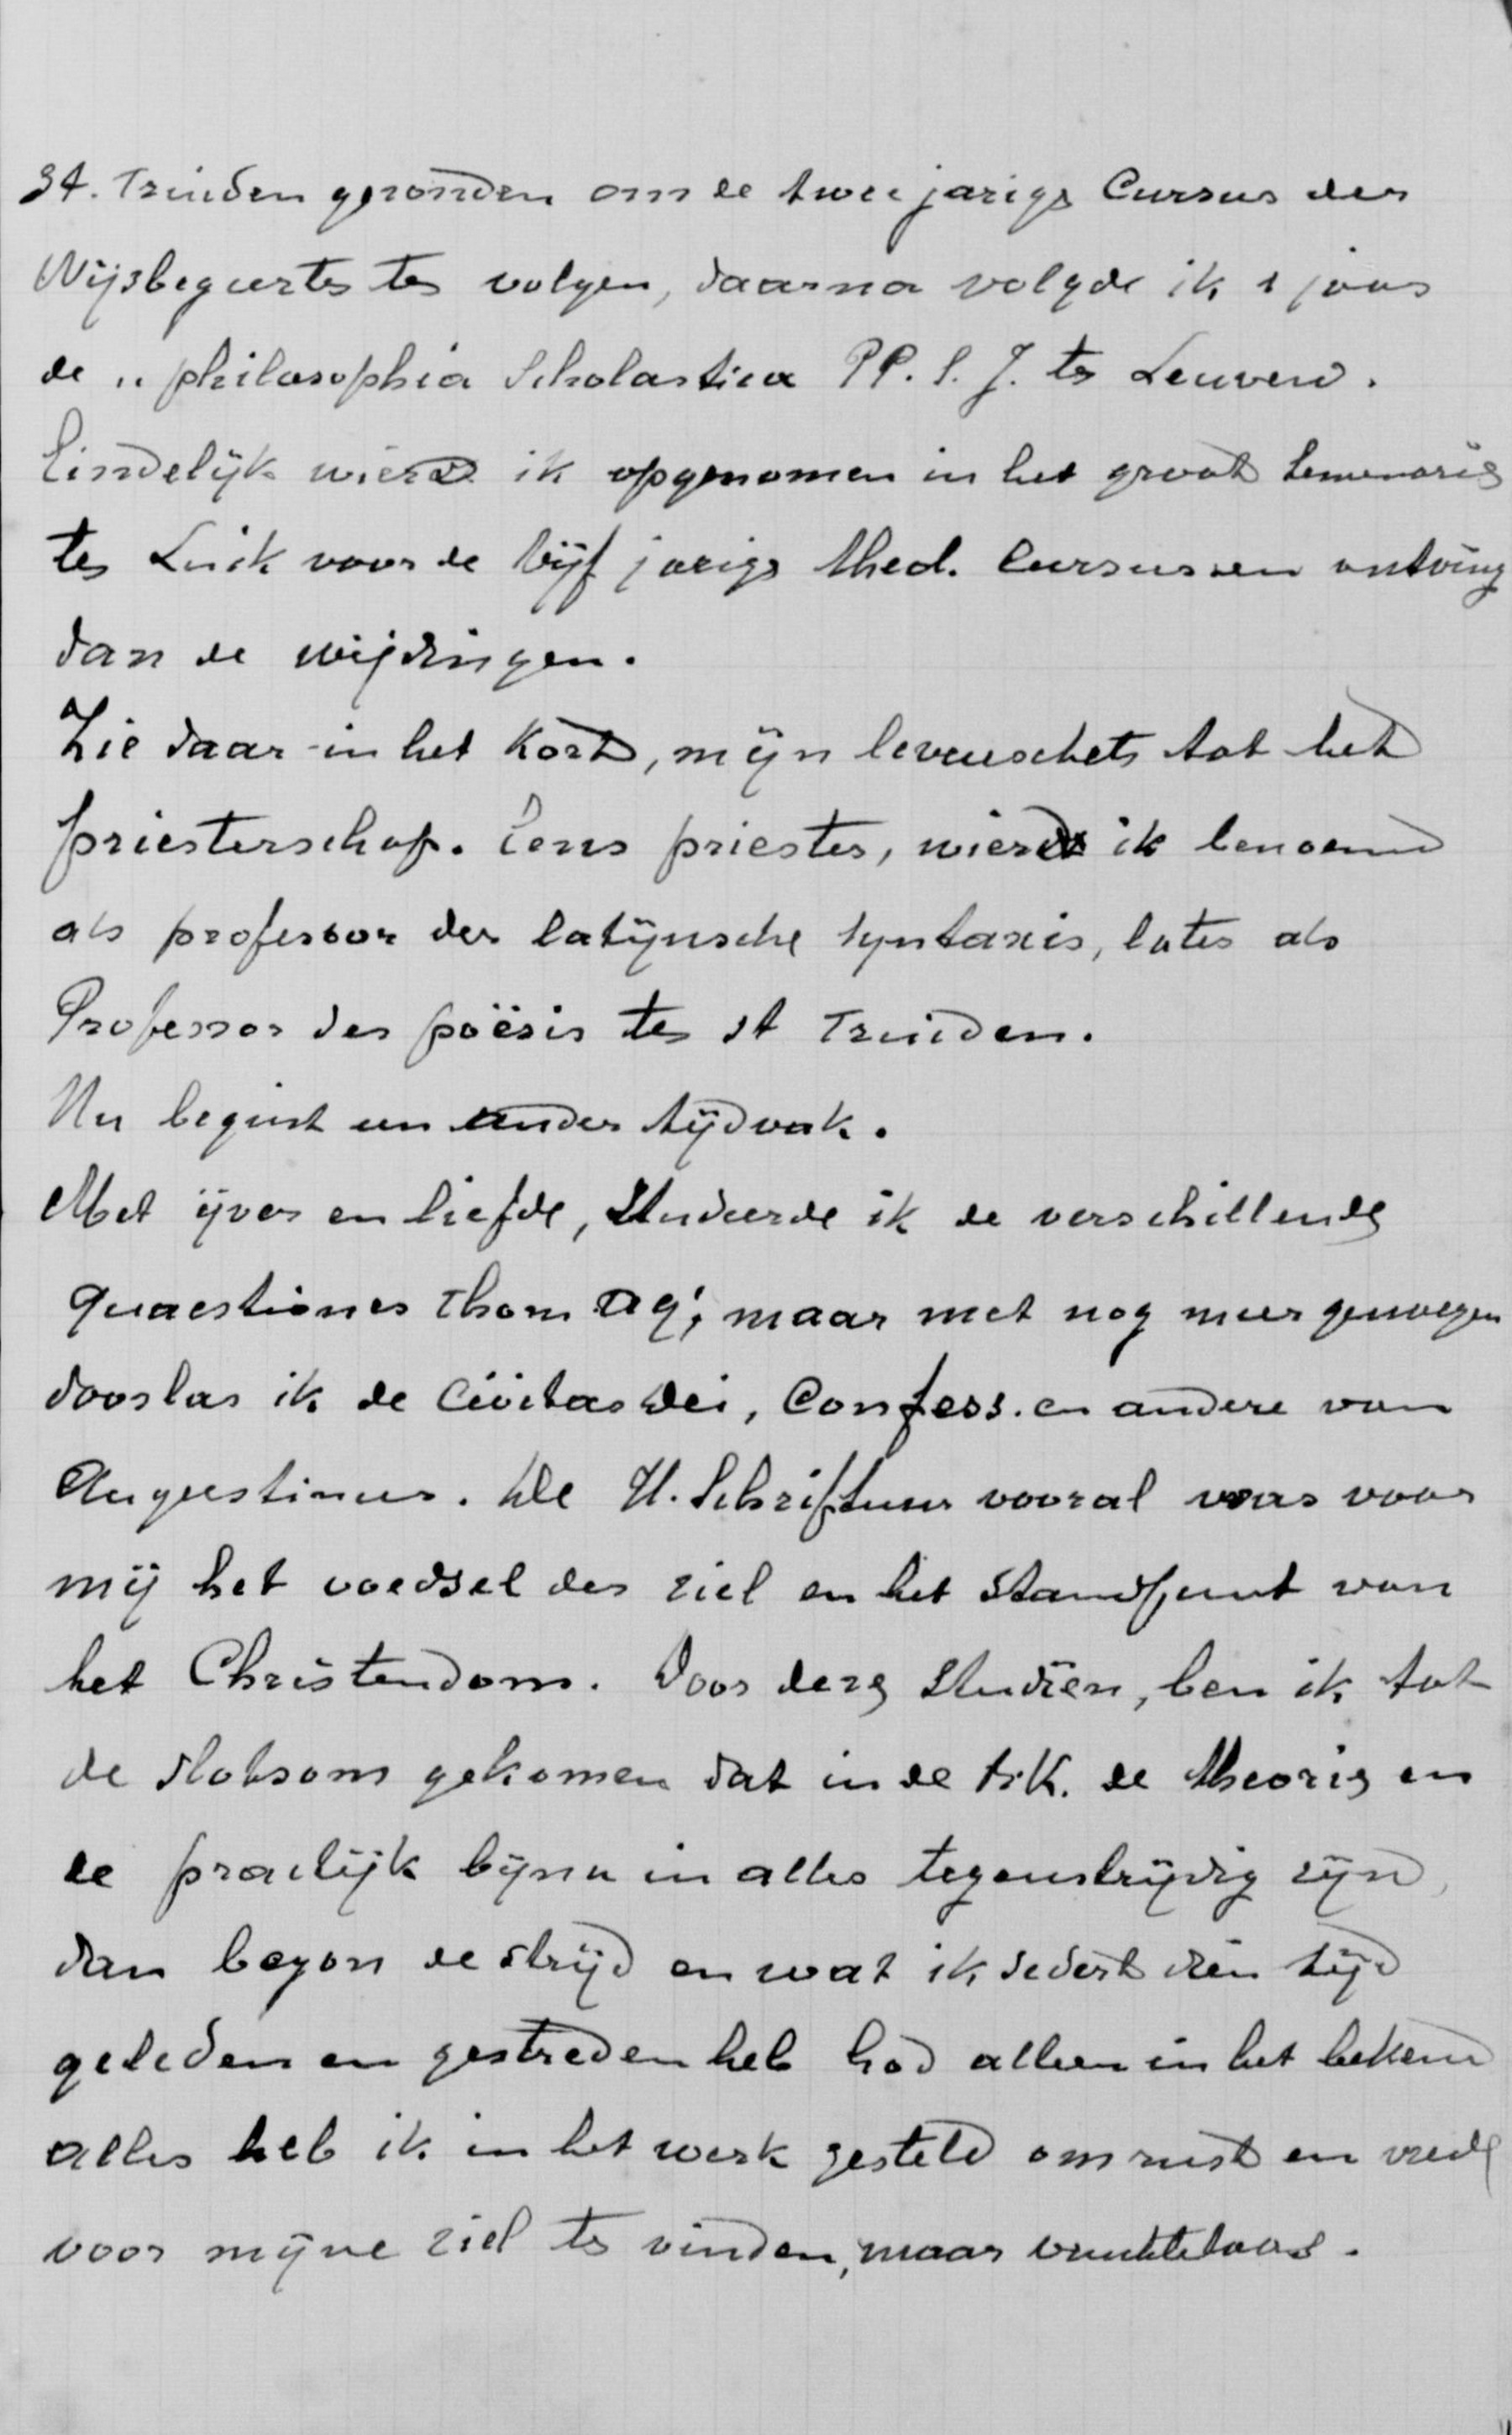 St. Truiden gezonden om de twee jarige Cursus der
Wijsbegeerte te volgen, daarna volgde ik 1 jaar
de „philosophia Scholastica PP. S. J. te Leuven.
Eindelijk wierd ik opgenomen in het groot Semenarie
te Luik voor de vijf jarige theol. Cursussen ontving
dan de wijdingen.
Zie daar in het Kort, mijn levenschets tot het
priesterschap. Eens priester, wierd ik benoemd
als professor der latijnsche syntaxis, later als
Professor der poësis te St Truiden.
Nu begint een ander tijdvak.
Met ijver en liefde, studeerde ik de verschillende
quaestiones Thom Aq; maar met nog meer genoegen
doorlas ik de Civitas Dei, Confess. en andere van
Augustinus. De H. Schriftuur vooral was voor
mij het voedsel der ziel en het standpunt van
het Christendom. Door deze Studiën, ben ik tot
de slotsom gekomen dat in de K. de theorie en
de practijk bijna in alles tegenstrijdig zijn,
dan begon de strijd en wat ik sedert dien tijd
geleden en gestreden heb God alleen is het bekend
alles heb ik in het werk gesteld om rust en vrede
voor mijne ziel te vinden, maar vruchteloos.